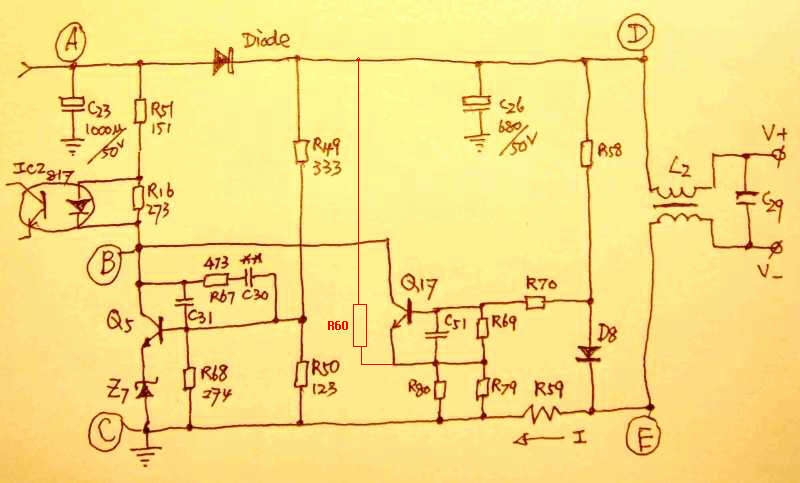 A
Diode
D
C23
1000μ
/50V
R51
151
R49
333
C26
680
/50V
R58
V+
L2
C29
V-
IC2 817
R16
273
B
473
R67
**
C30
C31
Q5
R60
Q17
R70
C51
R69
D8
R68
274
R50
123
Z7
R80
R79
R59
C
I
E